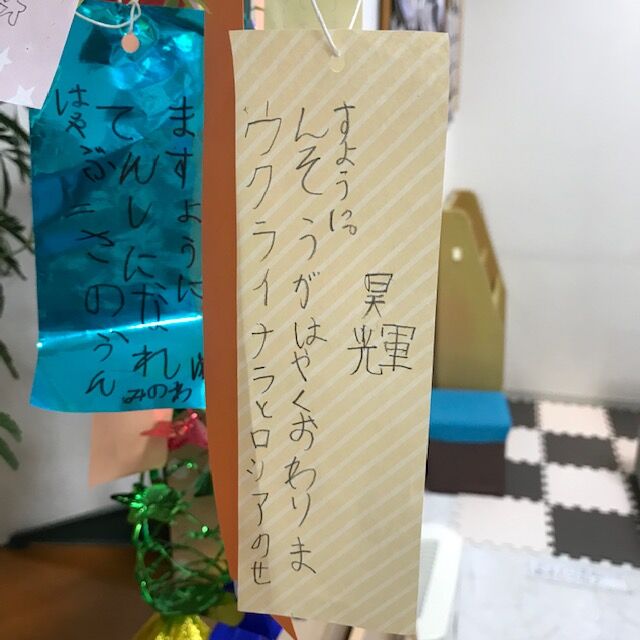 はやぶさのうん
てんしになれ
ますように
みのわ
ウクライナラとロシアのせ
んそうがはやくおわりま
すように。
昊輝